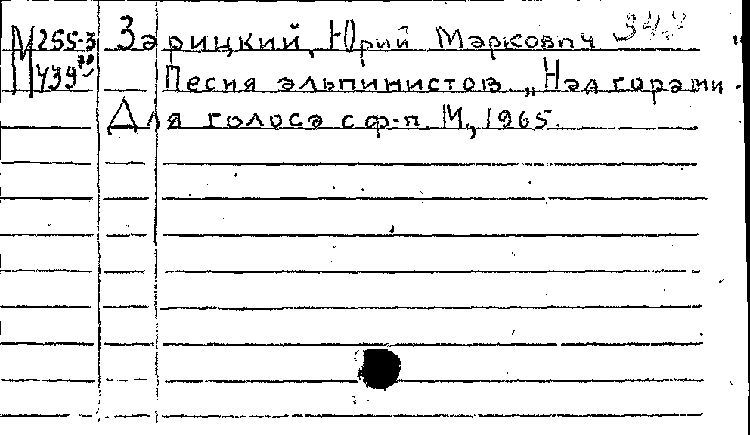 М 255-3 Зарицкий, Юрий Маркович
439 Песня альпинистов „Над горами.
Для голоса с ф-п М, 1965.